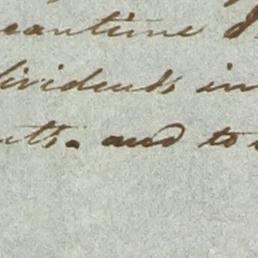 eantime
dividends in
and to